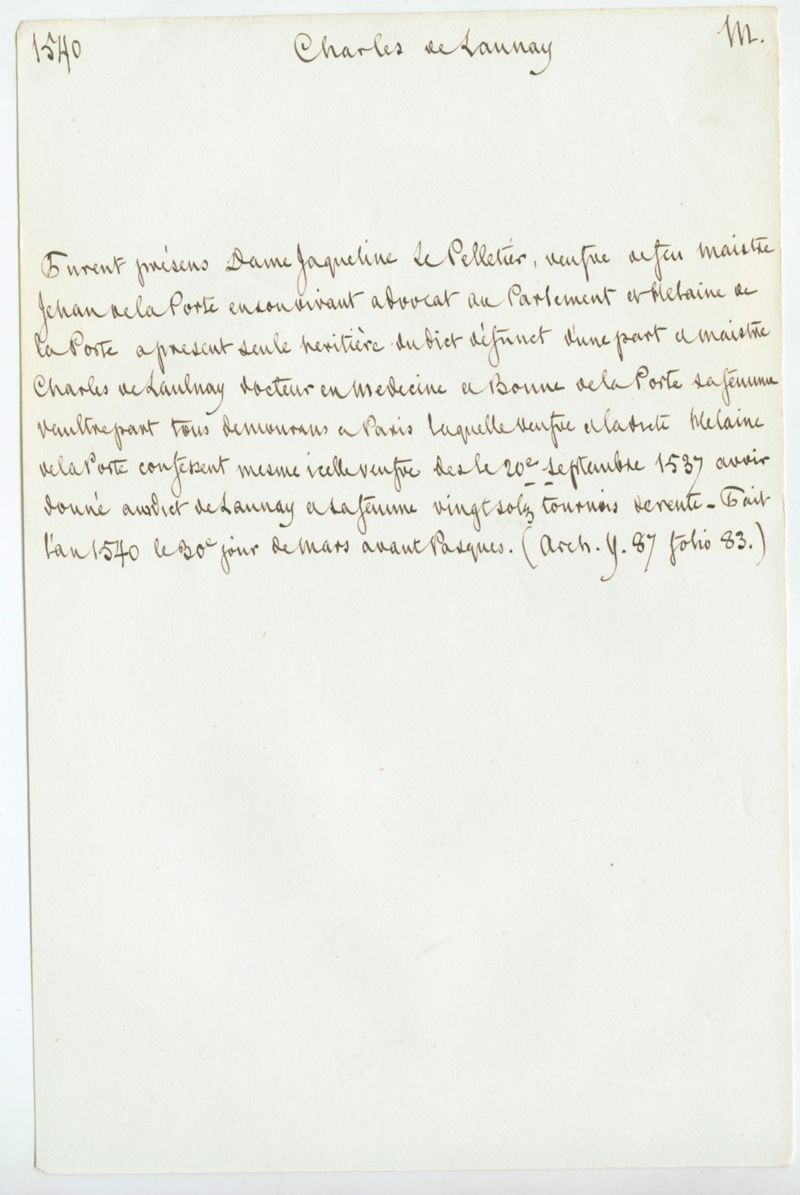 1540 Charles de Launay M.
Furent présens Dame Jaqueline Le Pelletier, veufve de feu maistre
Jehan de la Porte en son vivant advocat au Parlement et Melaine de
la Porte a present seule heritière du dict défunct d'une part et maistre
Charles de Laulnay docteur en medecine et Bonne de la Porte sa femme
d'aultre part tous demourans a Paris laquelle veufve et ladicte Melaine
de la Porte confessent mesme icelle veufve des le 20e septembre 1537 avoir
donné audict de Launay et sa femme vingt solz tournois de rente - Fait
l'an 1540 le 30e jour de mars avant Pasques. (Arch. Y. 87 folio 83.)